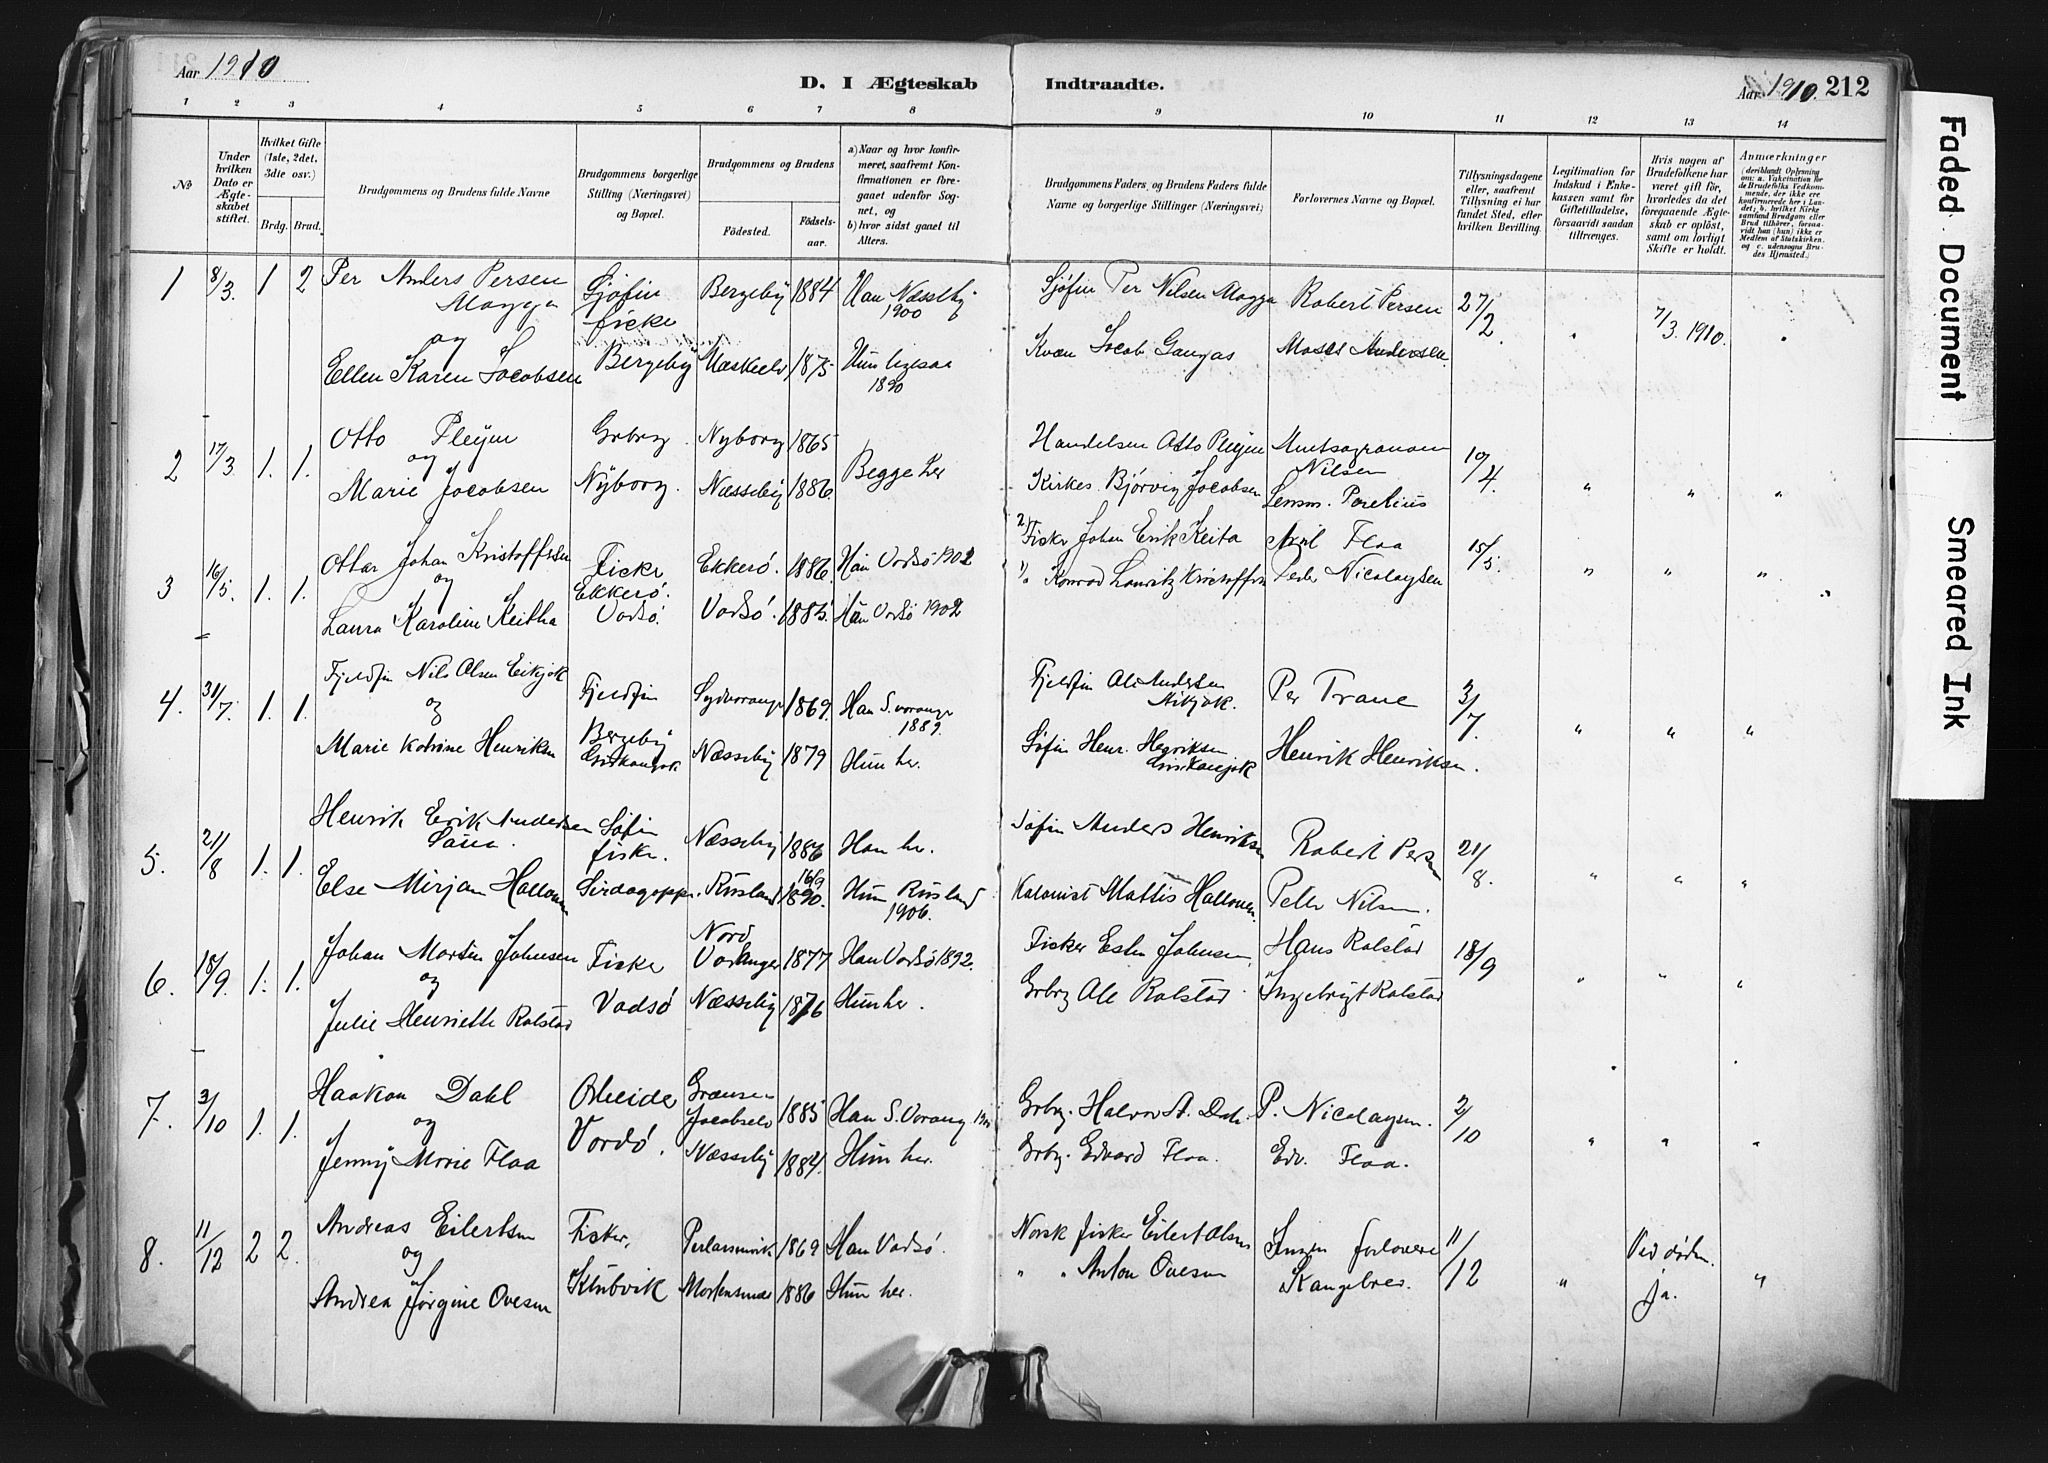 Aar 1910
D. I Ægteskab Indtraadte.
Aar 1910. 212
1 2 3 4 5 6 7 8 9 10 11 12 13 14
No
Under hvilken Dato er Ægteskabet stiftet.
Hvilket Gifte (1ste, 2det, 3die osv.)
Brdg. Brud.
Brudgommens og Brudens fulde Navne
Brudgommens borgerlige Stilling (Næringsvei) og Bopæl.
Brudgommens og Brudens
Fødested.
Fødselsaar.
a) Naar og hvor konfirmeret, saafremt Konfirmationen er foregaaet udenfor Sognet, og
b) hvor sidst gaaet til Alters.
Brudgommens Faders, og Brudens Faders fulde Navne og borgerlige Stillinger (Næringsvei)
Forlovernes Navne og Bopæl.
Tillysningsdagene eller, saafremt Tillysning ei har fundet Sted, efter hvilken Bevilling.
Legitimation for Indskud i Enkekassen samt for Giftetilladelse, forsaavidt saadan tiltrænges.
Hvis nogen af Brudefolkene har været gift før, hvorledes da det foregaaende Ægteskab er opløst, samt om lovligt Skifte er holdt.
Anmerkninger (deriblandt Oplysning om: a. Vakcination for de Brudefolks Vedkommende, der ikke ere konfirmerede her i Landet; b. hvilket Kirkesamfund Brudgom eller Brud tilhører, forsaavidt han (hun) ikke er Medlem af Statskirken, og c. udensogns Brudes Hjemsted.)
1 8/3. 1 2 Per Anders Persen Sjøfin Bergeby 1884 Han Næsseby Sjøfin Per Nilsen Magga Robert Persen 27/2
Magga fisker 1900 7/3. 1910.
og
Ellen Karen Jacobsen Bergeby 1875 Hun 1890 Kvæn Jacob Moses Andersen.
2 17/3. 1. 1. Otto Pleym Grbrg. Nyborg 1865 Handelsm Otto Pleym Amtsagronom 10/4.
og Begge her Nilsen
Marie Jacobsen Nyborg. Næsseby 1886. Kirkes. Bjørvig Jacobsen Lensm.
3 16/5. 1. 1. Ottar Johan Kristoffersen Fisker Ekkerø. 1886. Han Vadsø 1902 2/ Fisker Johan Erik Keita Axel Flaa 15/5.
og Ekkerø. 1/ Konrad Lauritz Kristoffersen Peder Nicolaysen
Laura Karoline Keitha Vadsø. Vadsø. 1885. Hun Vadsø 1902
4. 31/7. 1. 1. Fjeldfin Nils Olsen Eikjok Fjeldfin Sydvaranger 1869. Han S. varanger Fjeldfin Ole Andersen Per Trane 3/7
og 1889.
Marie Katrine Henriksen Bergeby Næsseby 1879 Hun her. Søfin Henr. Henriksen Henrik Henriksen.
5. 21/8 1. 1. Henrik Erik Andersen Søfin Næsseby 1886 Han her. Søfin Anders Henriksen Robert Persen 21/8.
fisker. 16/9
Else Mirjam Hallonen Rusland 1890. Hun Rusland Kolonist Mattis Hallonen. Peder Nilsen.
1906.
6. 18/9. 1. 1. Johan Martin Johnsen Fisker Nord Varanger 1877 Han Vadsø 1892. Fisker Johnsen. Hans Rolstad 18/9
og
Julie Henriette Rolstad Vadsø Næsseby 1876 Hun her. Grbrg Ole Rolstad Ingebrigt Rolstad
7. 3/10 1. 1. Haakon Dahl Arbeider Grænsen Jacobselv 1885 Han S. Varang Grbrg. Halvor A. Dahl P. Nicolaysen. 2/10
og
Jenny Marie Flaa Vardø. Næsseby 1884. Hun her. Grbrg. Edvard Flaa. Edv. Flaa.
8. 11/12 2 2. Andreas Eilertsen Fisker, 1869 Han Vadsø. Norsk fisker Eilert Olsen Ingen forlovere 11/12 Ved døden.
og
Andrea Jørgine Ovesen Klubvik Mortensnæs 1886 Hun her. " " Anton Ovesen Kangebrev. " Ja. "
Faded Document
Smeared Ink